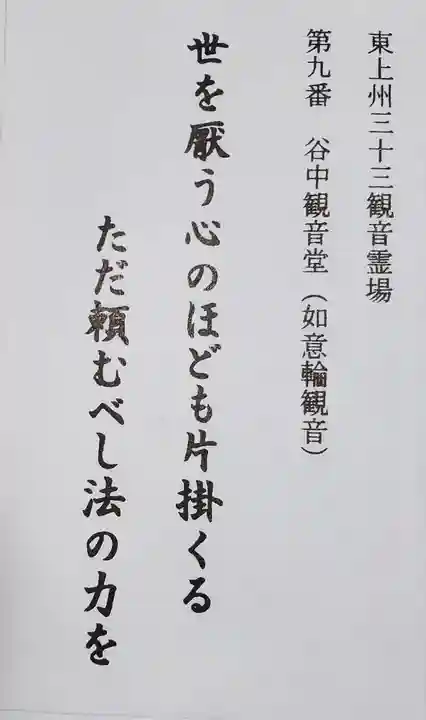 東上州三十三観音霊場
第九番　谷中観音堂（如意輪観音）
世を厭う心のほども片掛くる
ただ頼むべし法の力を